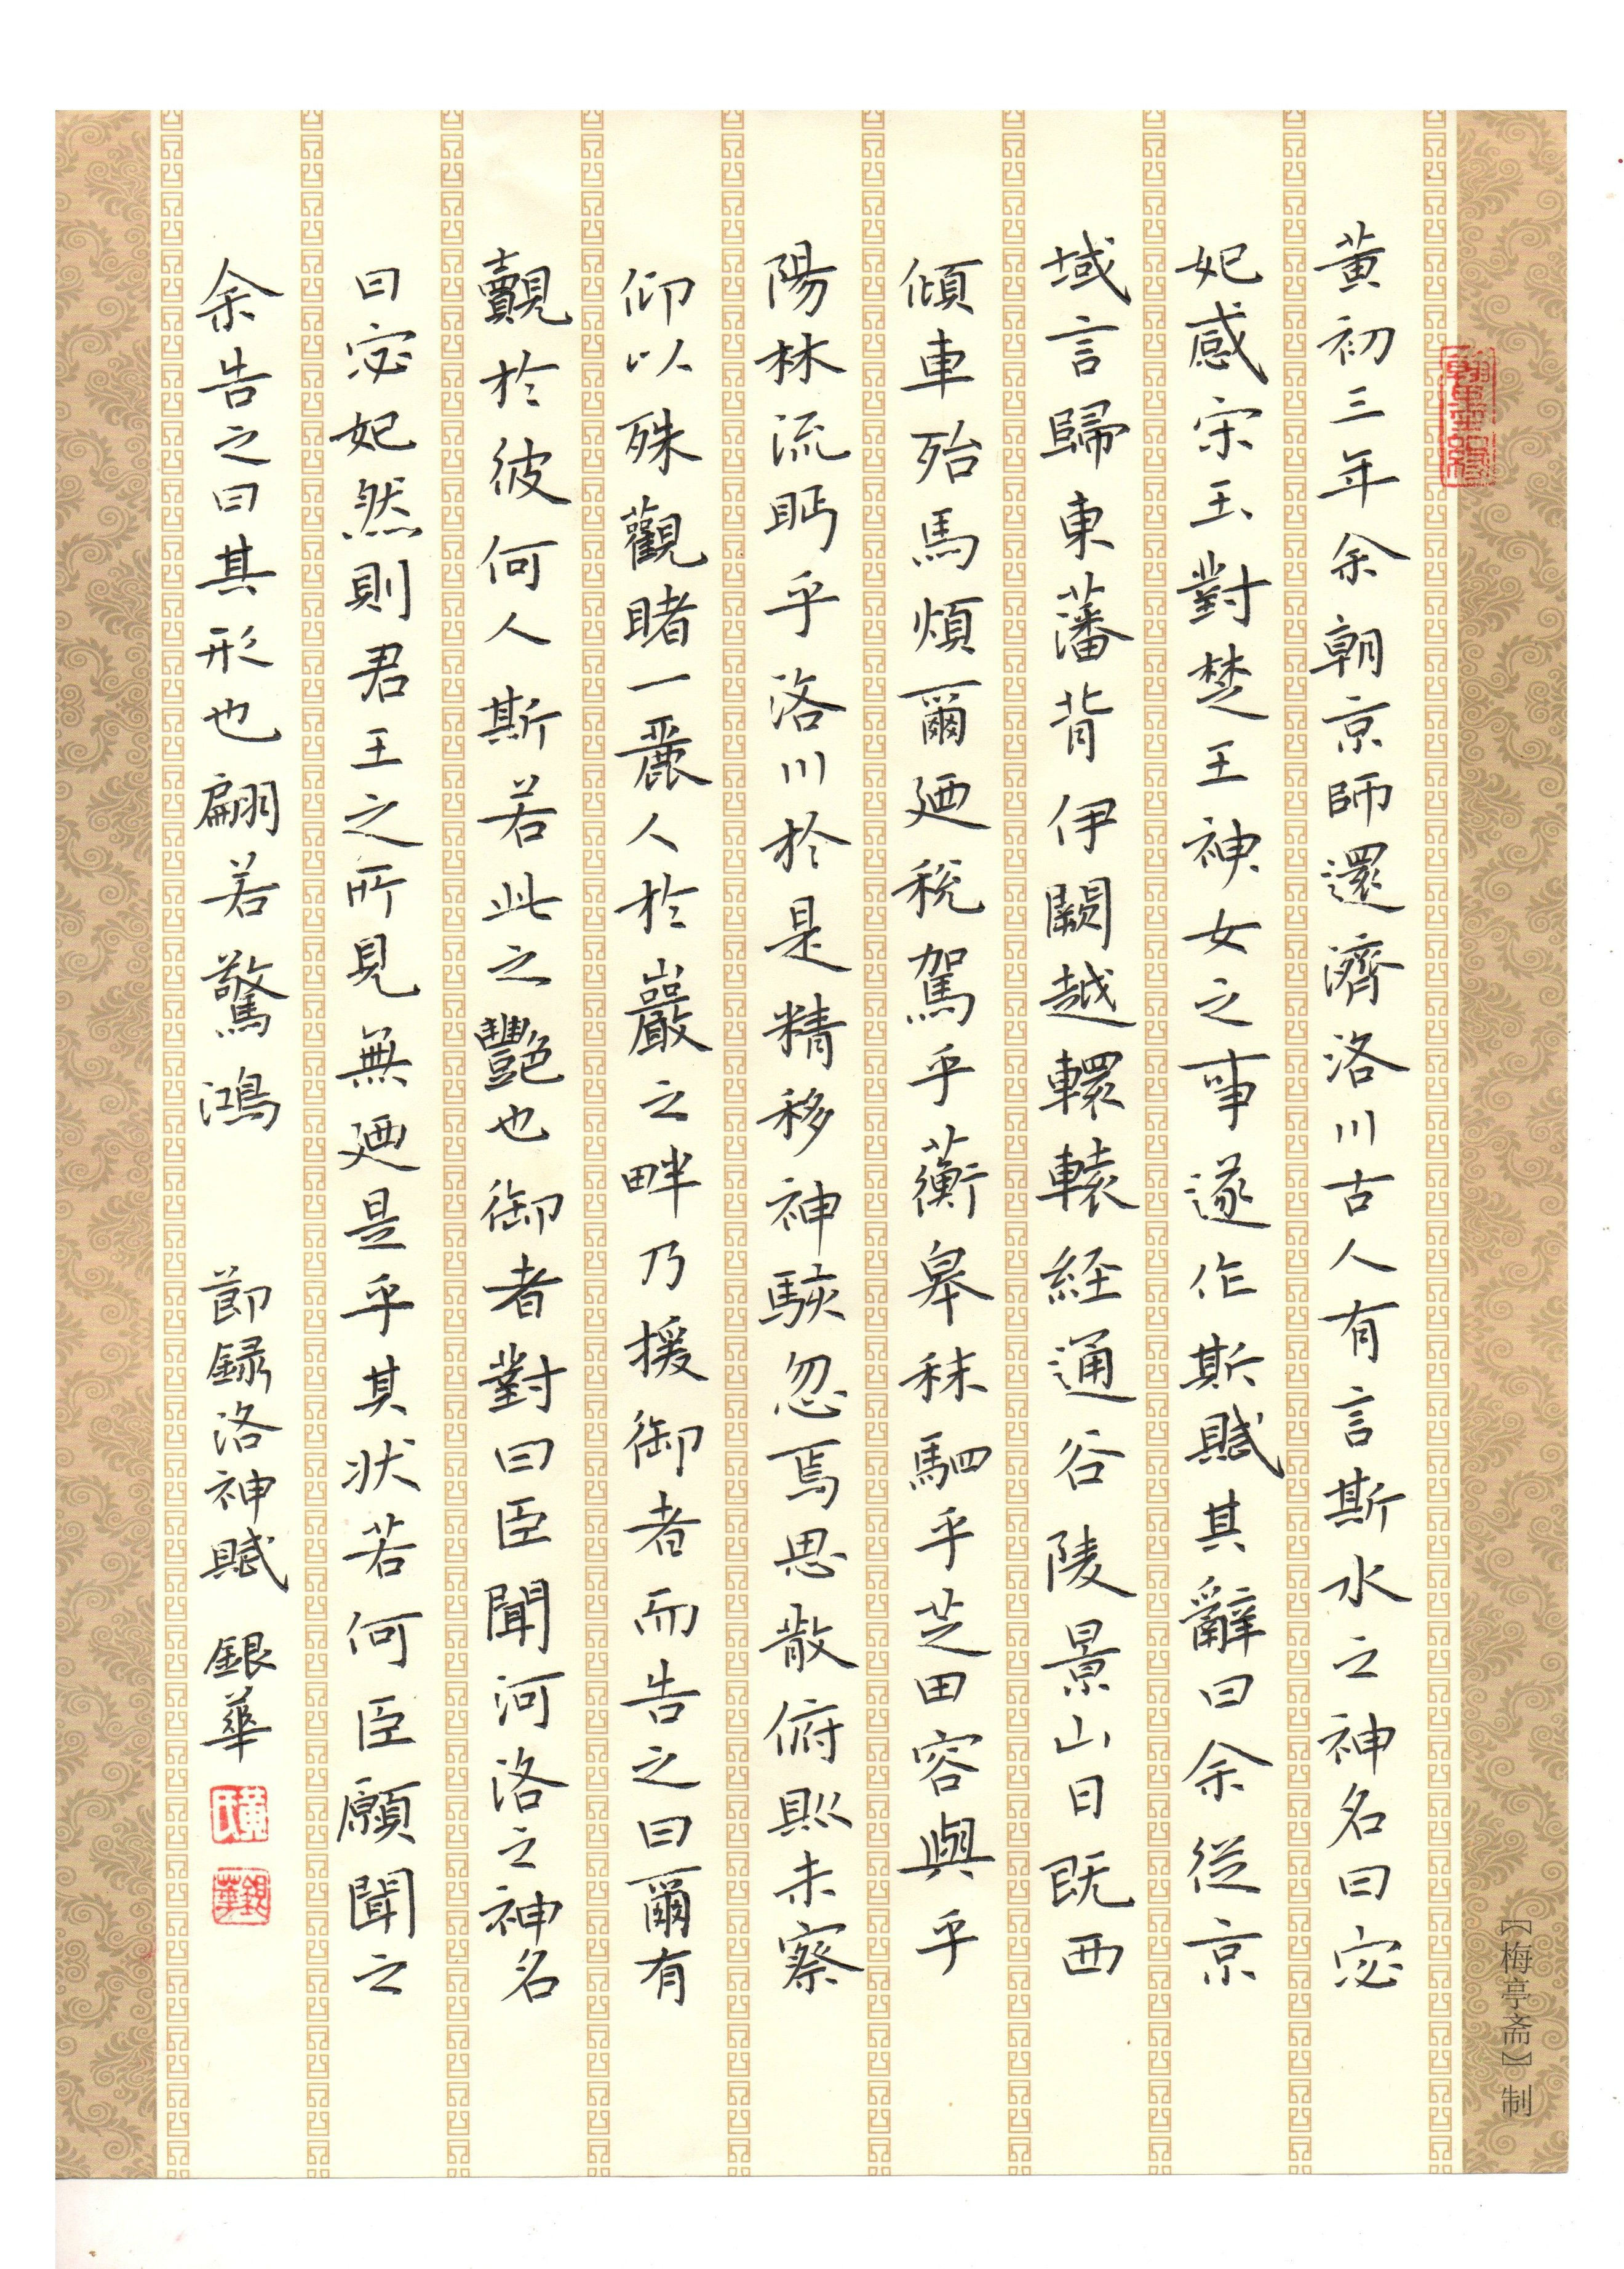 黃初三年余朝京師還濟洛川古人有言斯水之神名曰宓
妃感宋玉對楚王神女之事遂作斯賦其辭曰余從京
域言歸東藩背伊闕越轘轅経通谷陵景山日既西
傾車殆馬煩爾廼稅駕乎蘅皋秣駟乎芝田容與乎
陽林流眄乎洛川於是精移神駭忽焉思散俯則未察
仰以殊觀睹一麗人於巖之畔乃援御者而告之曰爾有
覿於彼何人斯若此之艷也御者對曰臣聞河洛之神名
曰宓妃然則君王之所見無廼是乎其狀若何臣願聞之
余告之曰其形也翩若驚鴻 節録洛神賦 銀華
黃氏
銀華
【梅亭斋】制